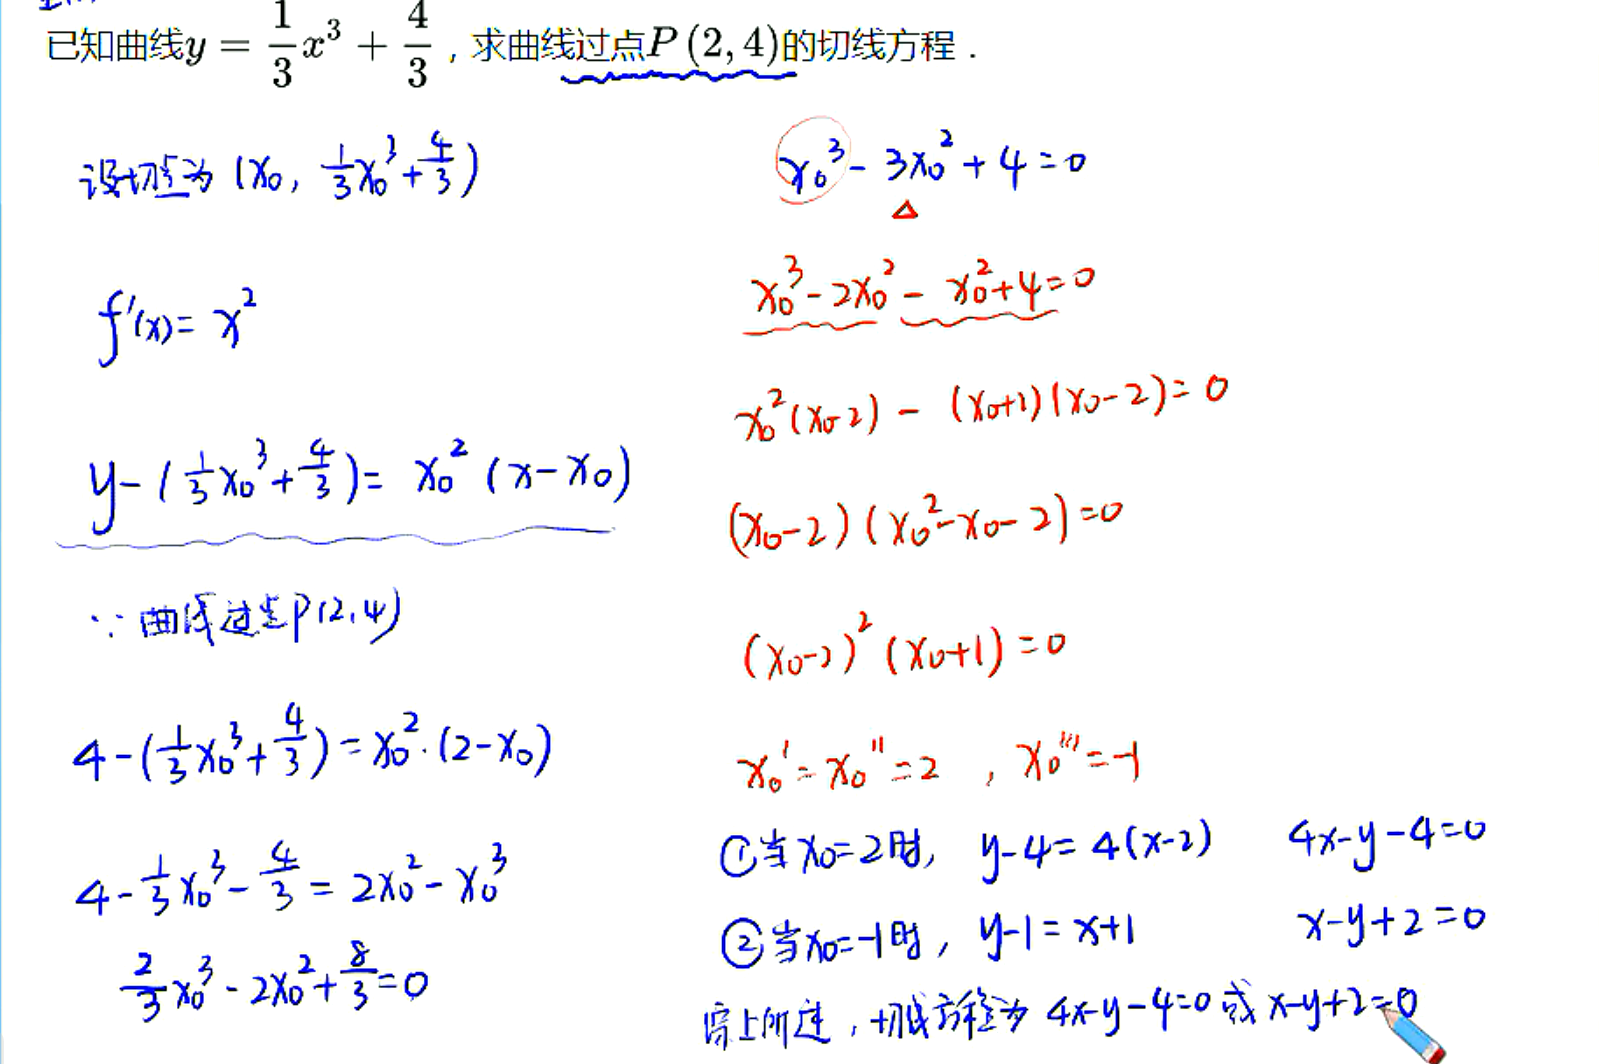 已知曲线y = \frac{1}{3}x^3 + \frac{4}{3}，求曲线过点P(2,4)的切线方程．
设切点为 (x_0, \frac{1}{3}x_0^3+\frac{4}{3})
f'(x) = x^2
y-(\frac{1}{3}x_0^3+\frac{4}{3})= x_0^2 (x-x_0)
∵ 曲线过点P(2,4)
4-(\frac{1}{3}x_0^3+\frac{4}{3})=x_0^2·(2-x_0)
4-\frac{1}{3}x_0^3-\frac{4}{3}=2x_0^2-x_0^3
\frac{2}{3}x_0^3-2x_0^2+\frac{8}{3}=0
x_0^3-3x_0^2+4=0
△
x_0^3-2x_0^2-x_0^2+4=0
x_0^2(x_0-2)-(x_0+2)(x_0-2)=0
(x_0-2)(x_0^2-x_0-2)=0
(x_0-2)^2(x_0+1)=0
x_0'=x_0''=2 , x_0'''=-1
①当x_0=2时, y-4=4(x-2) 4x-y-4=0
②当x_0=-1时, y-1=x+1 x-y+2=0
综上所述, 切线方程为 4x-y-4=0 或 x-y+2=0